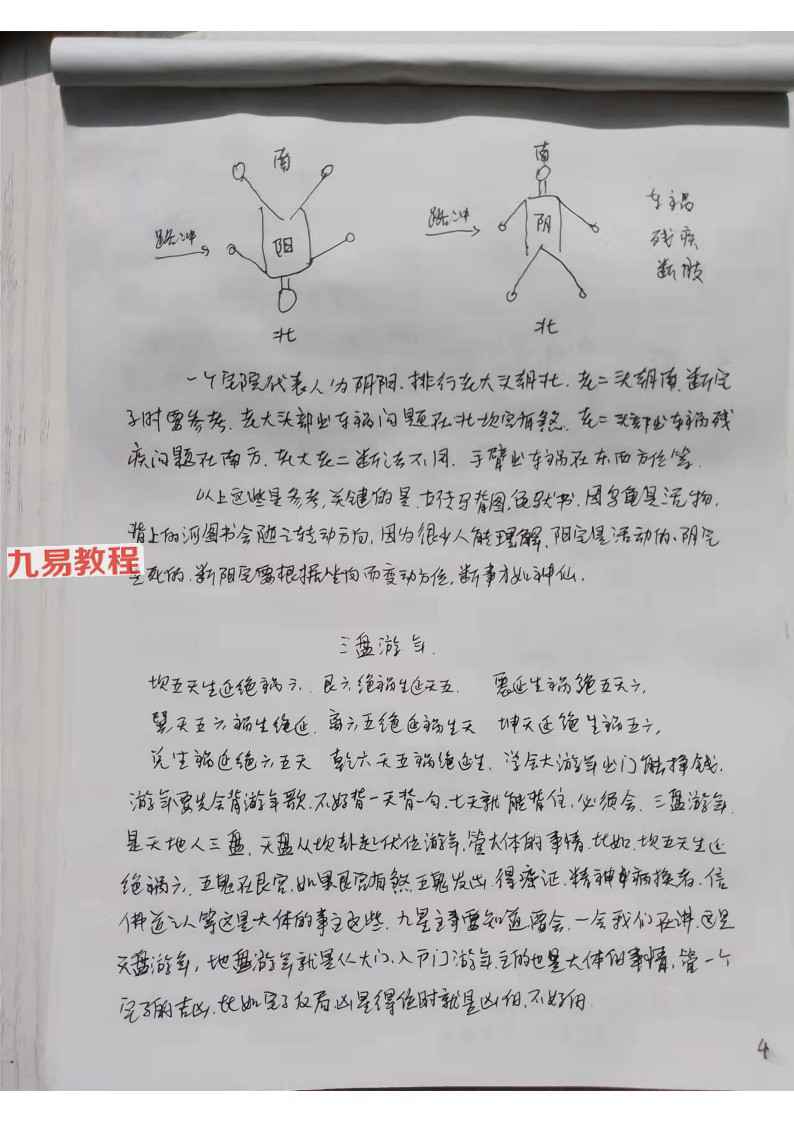 南
南
路冲
阳
路冲
阴
车祸
残疾
断肢
北
北
一个宅院代表人分阴阳.排行老大头朝北.老二头朝南.断宅
子时要参考.老大头部出车祸问题在北坎宫有煞.老二头部出车祸残
疾问题在南方.老大老二断法不同.手臂出车祸在东西方位等.
以上这些是参考,关键的是.古传马背图,龟驮书.因为龟是活物,
背上的河图书会随之转动方向,因为很少人能理解.阳宅是活动的.阴宅
是死的.断阳宅要根据坐向而变动方位,断事才如神仙.
九易教程
三盘游年.
坎五天生延绝祸六.艮六绝祸生延天五. 震延生祸绝五天六.
巽天五六祸生绝延.离六五绝延祸生天 坤天延绝生祸五六.
兑生祸延绝六五天 乾六天五祸绝延生.学会大游年出门能挣钱.
游年要先会背游年歌.不好背一天背一句.七天就能背住.必须会.三盘游年.
是天地人三盘.天盘从坎卦起伏位游年,管大体的事情.比如.坎五天生延
绝祸六.五鬼在艮宫.如果艮宫有煞.五鬼发出.得癔症.精神病患者.信
佛道之人等这是大体的事主这些.九星主事要知道要会.一会我们在讲.这是
天盘游年,地盘游年就是从大门.入户门游年.主的也是大体的事情,管一个
宅子的吉凶.比如宅子布局凶星得位时就是凶的.不好的.
4